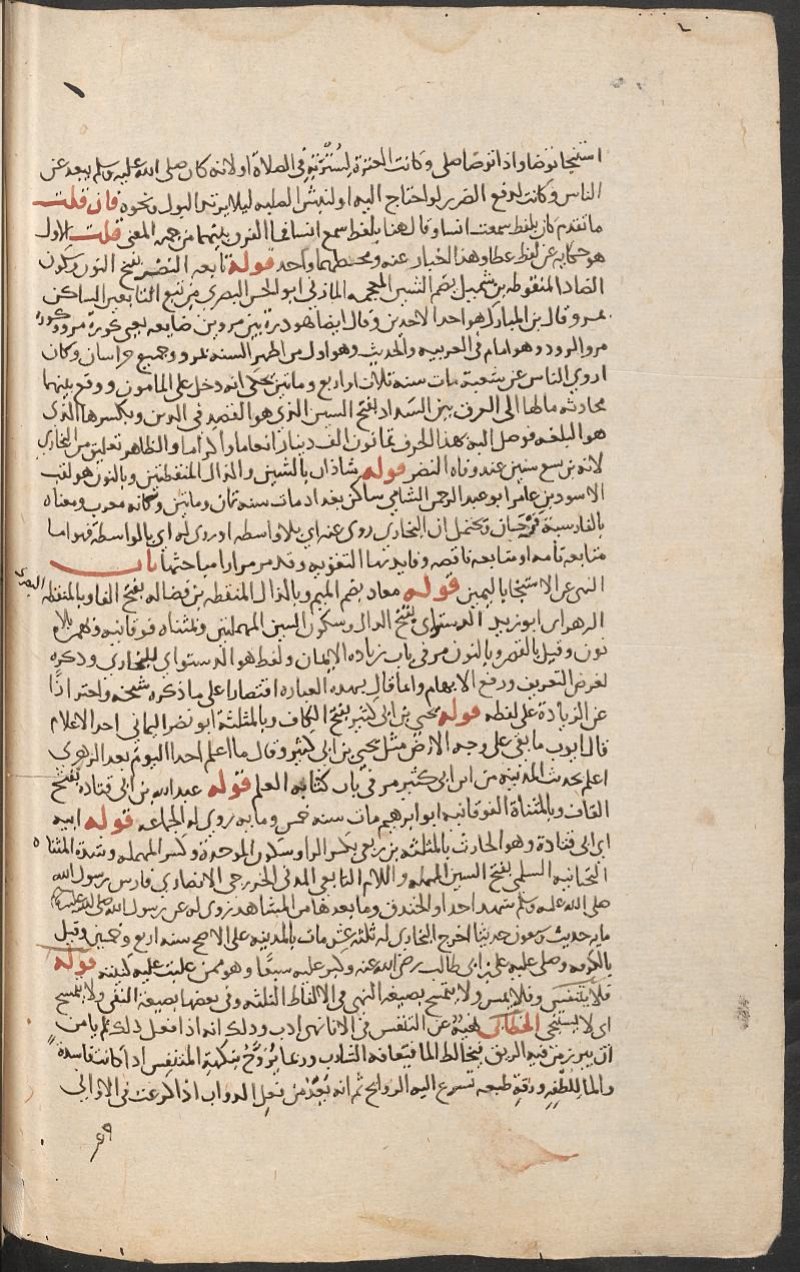 استنجا توضا واذا توضا صلى وكانت العنزة لسترته في الصلاة او لانه كان صلى الله عليه وسلم يبعد عن
الناس وكانت لدفع الضرر لو احتاج اليه او لنبش الصلبه ليلا يرتد البول ونحوه فان قلت
ما تقدم كان بلفظ سمعت انسا وقال هنا بلفظ سمع انسا فما الفرق بينهما من جهه المعنى قلت الاول
هو حكايه عن لفظ عطا وهذا اخبار عنه ومحصلهما واحد قوله تابعه النضر بفتح النون وسكون
الضاد المنقوطه بن شميل بضم الشين المعجمه المازني ابو الحسن البصري من تبع التابعين الساكن
بمرو قال بن المبارك هو احد الاحدين وقال ايضا هو درة بين مروين ضايعه يعني كورة مرو وكورة
مرو الروذ وهو امام في العربيه والحديث وهو اول من اظهر السنه بمرو وجميع خراسان وكان
اروي الناس عن شعبة مات سنه ثلاث او اربع ومايتين يحكى انه دخل على المامون ووقع بينهما
محادثه مالها الى الفرق بين السداد بفتح السين الذي هو القصد في الدين وبكسرها الذي
هو البلغه فوصل اليه بهذا الحرف ثمانون الف دينار انعاما واكراما والظاهر تعليق من البخاري
لانه بن سبع سنين عند وفاه النضر قوله شاذان بالشين والذال المنقطتين وبالنون هو لقب
الاسود بن عامر ابو عبد الرحمن الشامي ساكن بغداد مات سنه ثمان ومايتين وكانه معرب ومعناه
بالفارسية فرحان ويحتمل ان البخاري روى عنه اي بلا واسطه او روى له اي بالواسطة فهو اما
متابعه تامه او متابعه ناقصه وفايدتها التقويه وقد مر مرارا مباحثها باب
النهي عن الاستنجا باليمين قوله معاذ بضم الميم وبالذال المنقطه بن فضاله بفتح الفا وبالمنقطه البصرى
الزهراي ابو زيد الدستواي بفتح الدال وسكون السين المهملتين وبمثناه فوقانيه وبهمز بلا
نون وقيل بالقصر وبالنون مر في باب زياده الايمان ولفظ هو الدستواي للبخاري وذكره
لغرض التعريف ورفع الابهام وانما قال بهذه العباره اقتصارا على ما ذكره شيخه واحترازا
عن الزيادة على لفظه قوله يحيى بن ابي كثير بفتح الكاف وبالمثلثة ابو نصر اليماني احد الاعلام
قال ايوب ما بقي على وجه الارض مثل يحيى بن ابي كثير وقال ما اعلم احدا اليوم بعد الزهري
اعلم بحديث المدينه من ابن ابي كثير مر في باب كتابه العلم قوله عبد الله بن ابي قتاده بفتح
القاف وبالمثناة الفوقانيه ابو ابرهيم مات سنه خمس ومايه روى له الجماعه قوله ابيه
اي ابي قتادة وهو الحارث بالمثلثه بن ربعي بكسر الرا وسكون الموحدة وكسر المهمله وشدة المثناه
التحتانيه السلمي بفتح السين المهمله واللام التابعي المدني الخزرجي الانصاري فارس رسول الله
صلى الله عليه وسلم شهد احدا والخندق وما بعدها من المشاهد روى له عن رسول الله صلى الله عليه وسلم
مايه حديث وسبعون حديثا اخرج البخاري له ثلثه عشر مات بالمدينه على الاصح سنه اربع وخمسين وقيل
بالكوفه وصلى عليه علي بن ابي طالب رضي الله عنه وكبر عليه سبعا وهو ممن غلبت عليه كنيته قوله
فلا يتنفس وفلا يمس ولا يتمسح بصيغه النهي في الالفاظ الثلثه وفي بعضها بصيغه النفي ولا يتمسح
اي لا يستنجي الخطابي نهيه عن التنفس في الانا نهي ادب وذلك انه اذا فعل ذلك لم يامن
ان يبرز من فيه الريق فيخالط الما فيعافه الشارب وربما يروح بنكهة المتنفس اذا كانت فاسدة
والما للطفه ورقة طبعه تسرع اليه الروايح ثم انه يعد من فعل الدواب اذا كرعت في الاواني